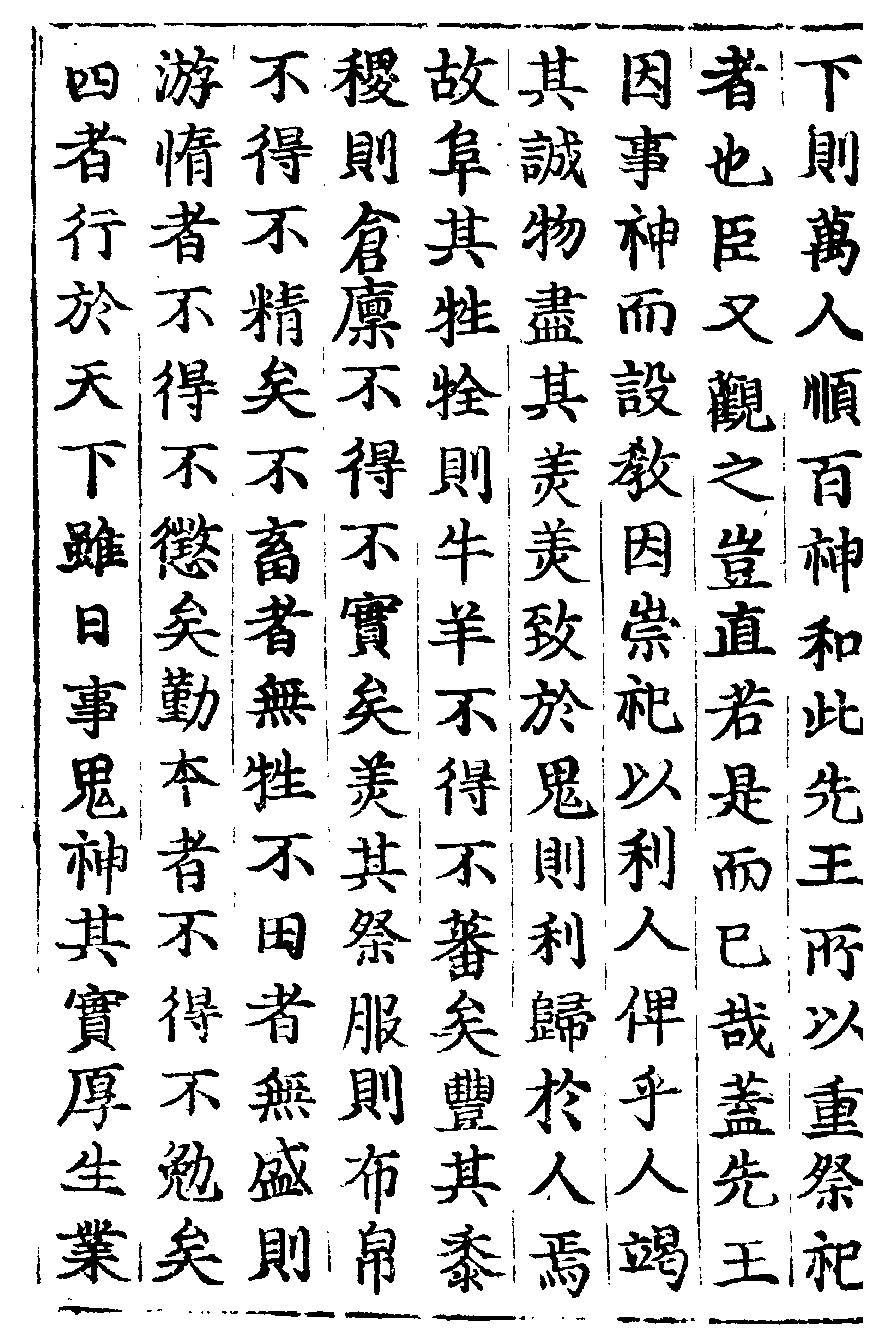 下則萬人順百神和此先王所以重祭祀
者也臣又觀之豈直若是而已哉蓋先王
因事神而設教因崇祀以利人俾乎人竭
其誠物盡其羙羙致於鬼則利歸於人焉
故阜其牲牷則牛羊不得不蕃矣豐其黍
稷則倉廪不得不實矣羙其祭服則布帛
不得不精矣不畜者無牲不田者無盛則
游惰者不得不懲矣勤夲者不得不勉矣
四者行於天下雖曰事鬼神其實厚生業